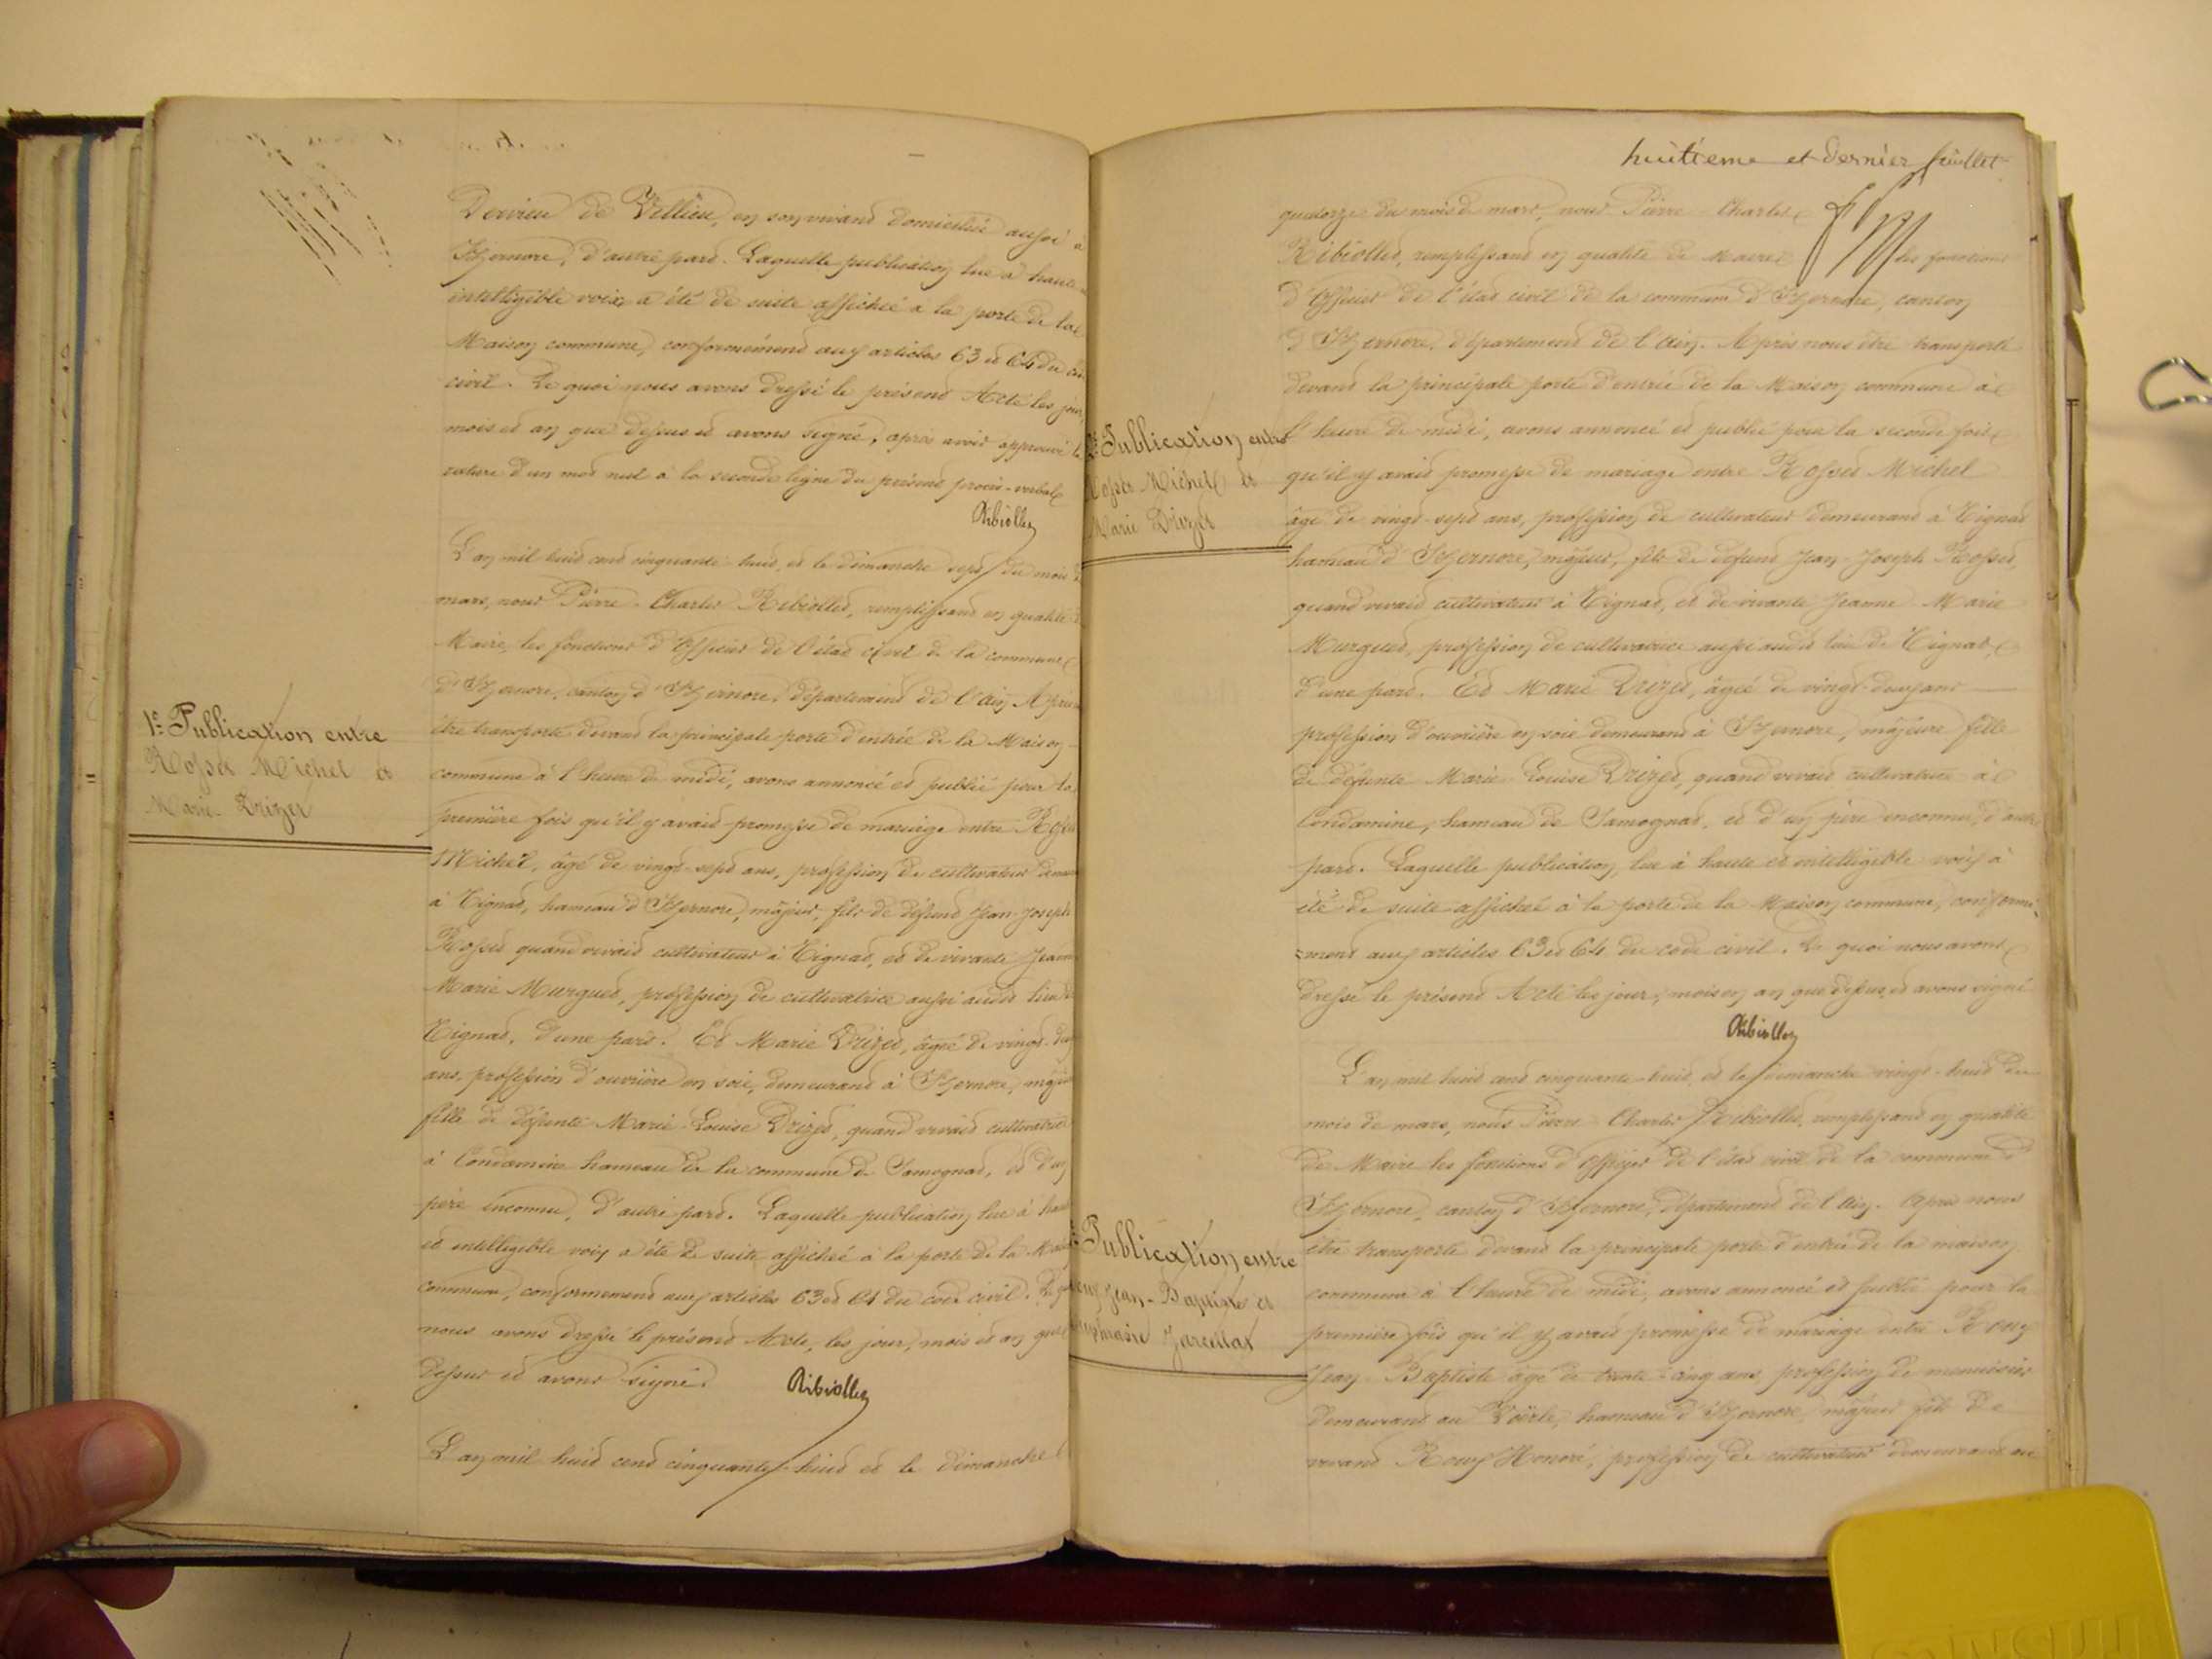 Dervieu de Villieu, en son vivant domicilié aussi à
Izernore, d'autre part. Laquelle publication lue à haute
intelligible voix a été de suite affichée à la porte de la
Maison commune, conformément aux articles 63 et 64 du
civil. De quoi nous avons dressé le présent Acte les jour,
mois et an que dessus et avons signé, après avoir approuvé la
rature d'un mot nul à la seconde ligne du présent procès-verbal
Ribiollet
L'an mil huit cent cinquante huit, et le dimanche sept du mois de
mars, nous Pierre-Charles Ribiollet, remplissant en qualité de
Maire, les fonctions d'Officier de l'état civil de la commune
d'Izernore, canton d'Izernore, département de l'Ain. Après
être transporté devant la principale porte d'entrée de la Maison
commune à l'heure de midi, avons annoncé et publié pour la
première fois qu'il y avait promesse de mariage entre Rosset
1e Publication entre
Rosset Michel et
Marie Drizet
Michel, âgé de vingt-sept ans, profession de cultivateur
à Tignat, hameau d'Izernore, majeur, fils de défunt Jean-Joseph
Rosset quand vivait cultivateur à Tignat, et de vivante Jeanne
Marie Murguet, profession de cultivatrice aussi audit lieu de
Tignat, d'une part. Et Marie Drizet, âgée de vingt-deux
ans, profession d'ouvrière en soie, demeurant à Izernore, majeure
fille de défunte Marie-Louise Drizet, quand vivait cultivatrice
à Condamine hameau de la commune de Samognat, et d'un
père inconnu, d'autre part. Laquelle publication lue à haute
et intelligible voix a été de suite affichée à la porte de la Maison
commune, conformément aux articles 63 et 64 du code civil. De quoi
nous avons dressé le présent Acte, les jour, mois et an que
dessus et avons signé.
Ribiollet
L'an mil huit cent cinquante-huit et le dimanche
huitieme et dernier feuillet
quatorze du mois de mars, nous Pierre-Charles
Ribiollet, remplissant en qualité de Maire les fonctions
d'Officier de l'état civil de la commune d'Izernore, canton
d'Izernore, département de l'Ain. Après nous être transporté
devant la principale porte d'entrée de la Maison commune à
l'heure de midi, avons annoncé et publié pour la seconde fois
2e Publication entre
Rosset Michel et
Marie Drizet
qu'il y avait promesse de mariage entre Rosset Michel
âgé de vingt-sept ans, profession de cultivateur demeurant à Tignat
hameau d'Izernore, majeur, fils de défunt Jean-Joseph Rosset,
quand vivait cultivateur à Tignat, et de vivante Jeanne Marie
Murguet, profession de cultivatrice aussi audit lieu de Tignat,
d'une part. Et Marie Drizet, âgée de vingt-deux ans
profession d'ouvrière en soie demeurant à Izernore, majeure fille
de défunte Marie-Louise Drizet, quand vivait cultivatrice à
Condamine, hameau de Samognat, et d'un père inconnu, d'autre
part. Laquelle publication, lue à haute et intelligible voix à
été de suite affichée à la porte de la Maison commune, conformé-
=ment aux articles 63 et 64 du code civil. De quoi nous avons
dressé le présent Acte les jour, mois en an que dessus, et avons signé
Ribiollet
L'an mil huit cent cinquante-huit, et le dimanche vingt-huit du
mois de mars, nous Pierre Charles Ribiollet, remplissant en qualité
de Maire les fonctions d'Officier de l'état civil de la commune d'
Izernore, canton d'Izernore, département de l'Ain. Après nous
être transporté devant la principale porte d'entrée de la maison
commune à l'heure de midi, avons annoncé et publié pour la
première fois qu'il y avait promesse de mariage entre Roux
Publication entre
Roux Jean-Baptiste et
Jareillat
Jean Baptiste âgé de trente-cinq ans, profession de menuisier
demeurant au Voërle, hameau d'Izernore, majeur fils de
vivant Roux Honoré, profession de cultivateur demeurant au